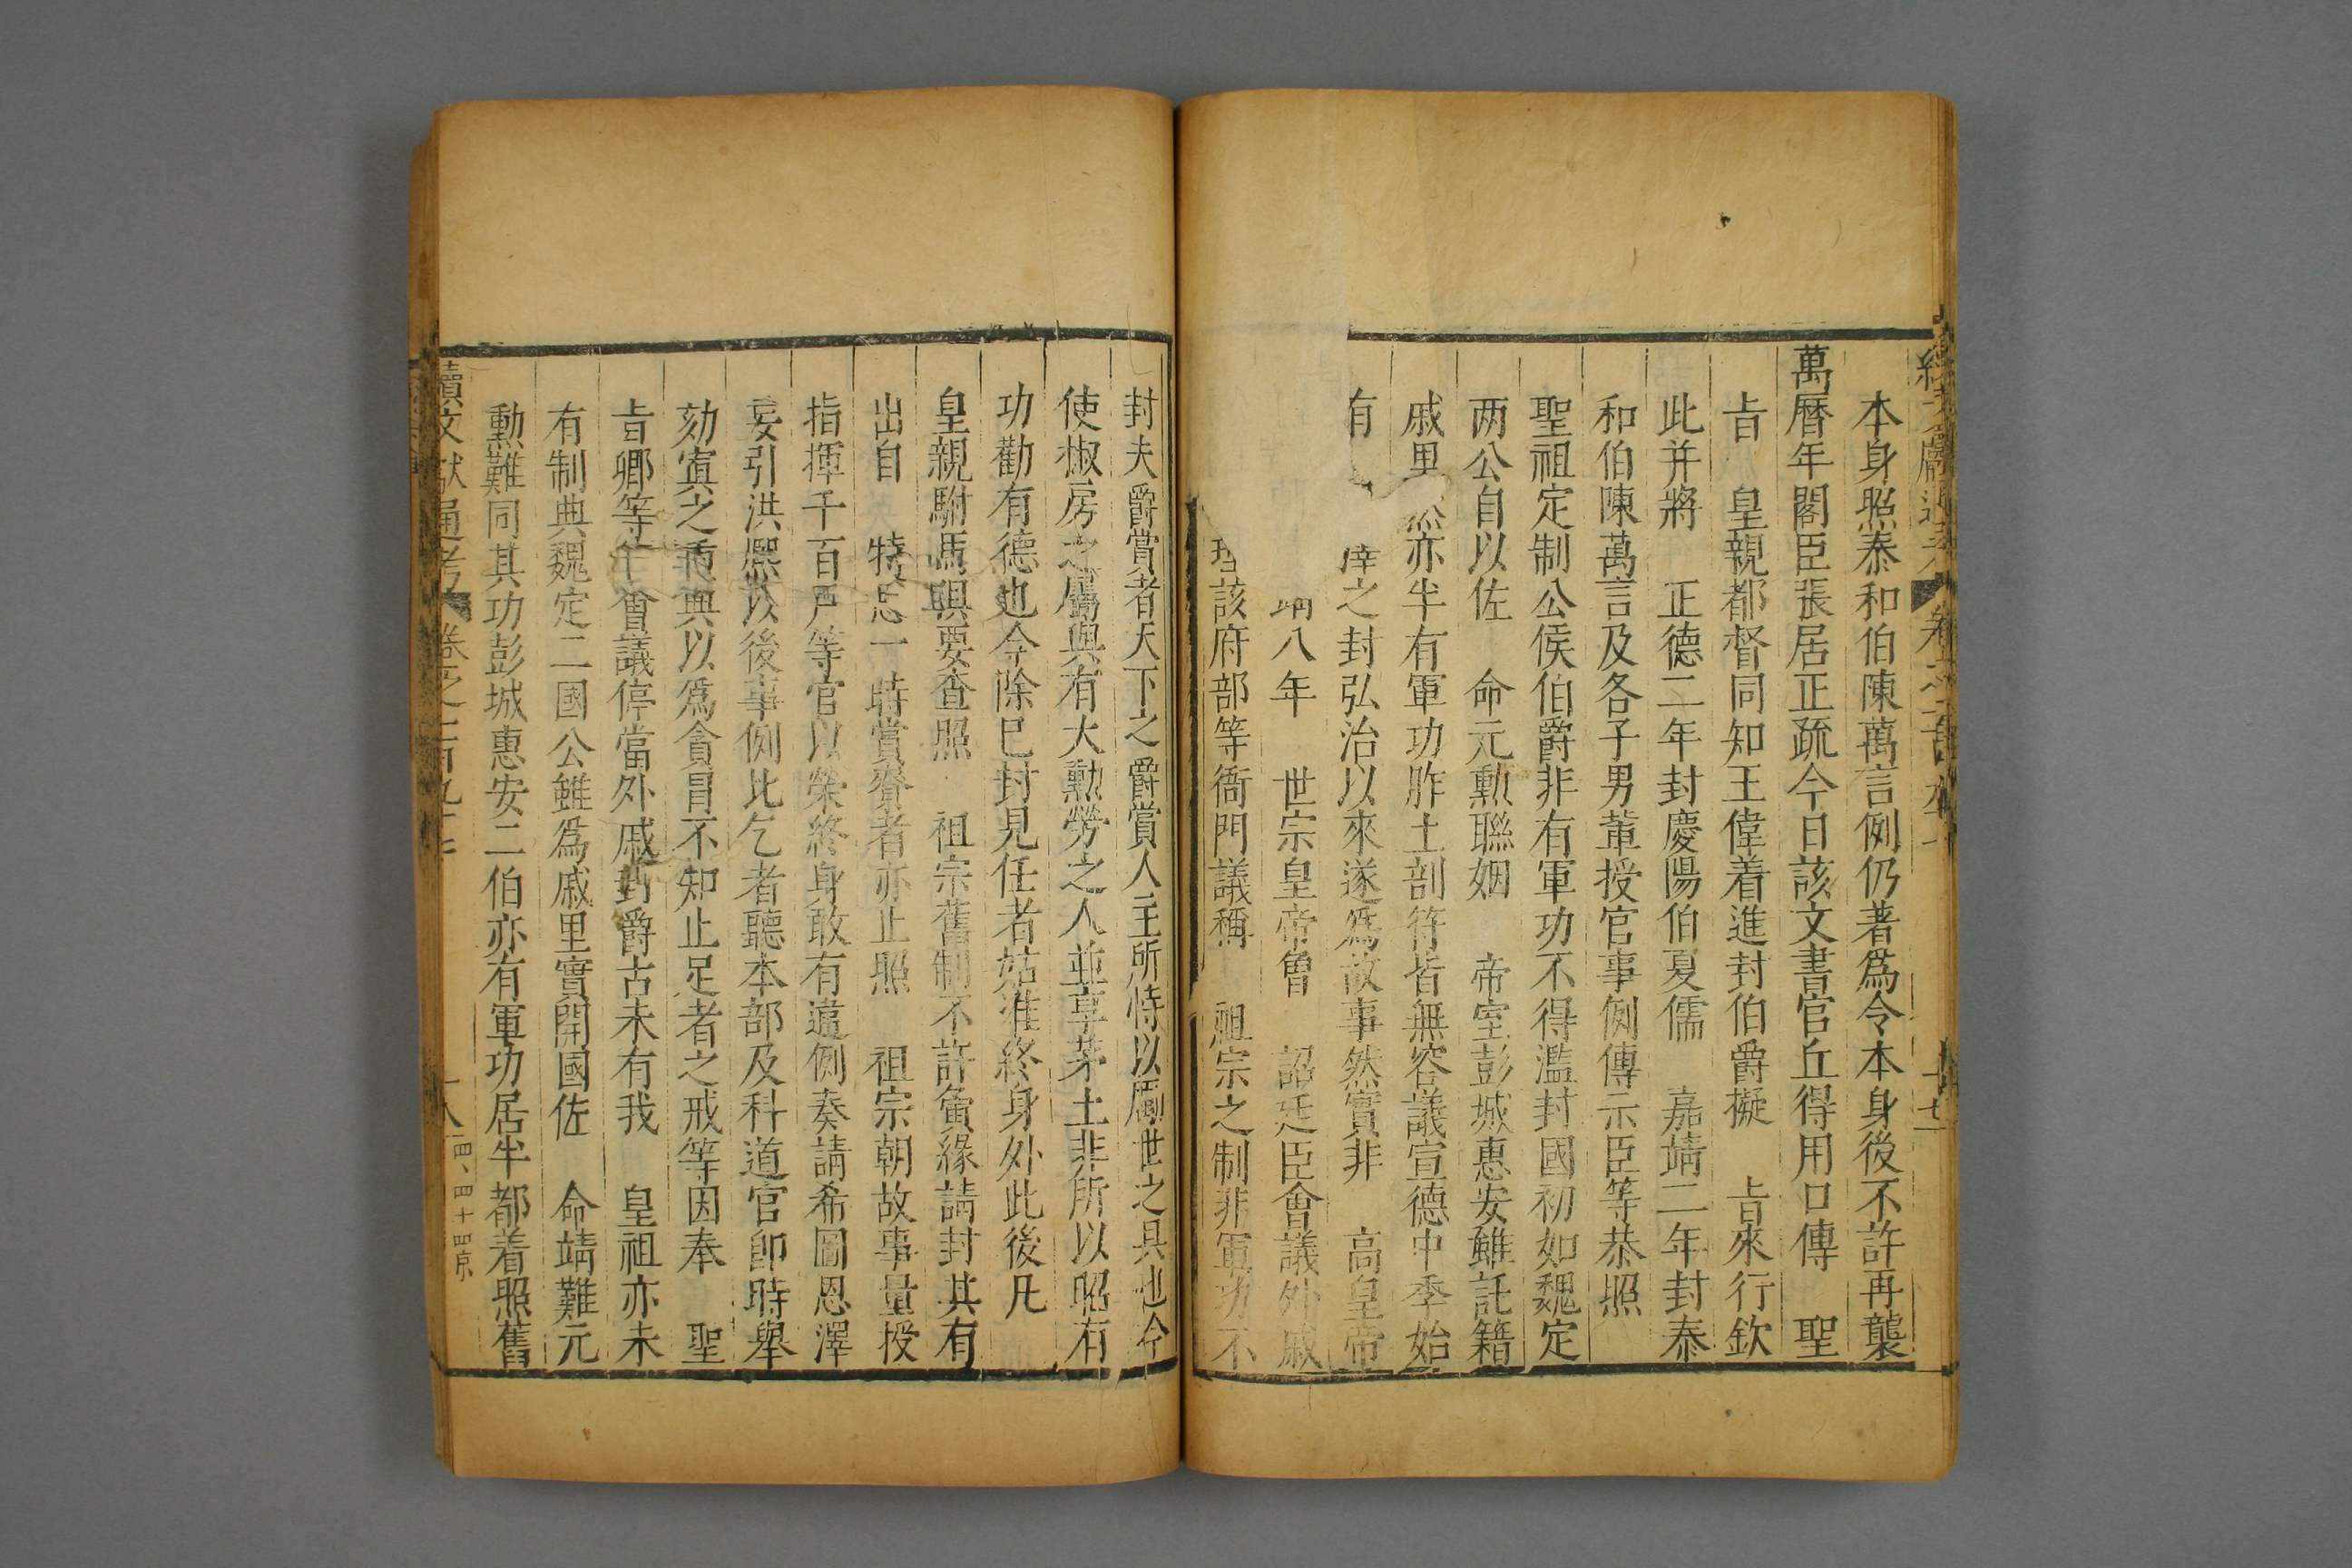 本身照泰和伯陳萬言例仍著爲令本身後不許再襲
萬曆年閣臣張居正疏今日該文書官丘得用口傳 聖
旨 皇親都督同知王偉着進封伯爵擬 旨來行欽
此并將 正德二年封慶陽伯夏儒 嘉靖二年封泰
和伯陳萬言及各子男輩授官事例傳示臣等恭照
聖祖定制公侯伯爵非有軍功不得濫封國初如魏定
两公自以佐 命元勳聯姻 帝室彭城惠安雖託籍
戚里 亦半有軍功胙土剖符皆無容議宣德中季始
有 之封弘治以來遂爲故事然實非 高皇帝
八年 世宗皇帝曾 詔廷臣會議外戚
該府部等衙門議稱 祖宗之制非軍功不
封夫爵賞者天下之爵賞人主所恃以厲世之具也今
使椒房之屬與有大勳勞之人並享茅土非所以昭有
功勸有德也今除已封見任者姑准終身外此後凡
皇親駙馬與要查照 祖宗舊制不許夤緣請封其有
出自 特恩一時賞賚者亦止照 祖宗朝故事量授
指揮千百戶等官以榮終身敢有違例奏請希圖恩澤
妄引洪熙以後事例比乞者聽本部及科道官即時舉
劾寘之重典以爲貪冒不知止足者之戒等因奉 聖
旨卿等 會議停當外戚封爵古未有我 皇祖亦未
有制典魏定二國公雖爲戚里實開國佐 命靖難元
勳難同其功彭城惠安二伯亦有軍功居半都着照舊
續文獻通考 卷之二百九十七 十八